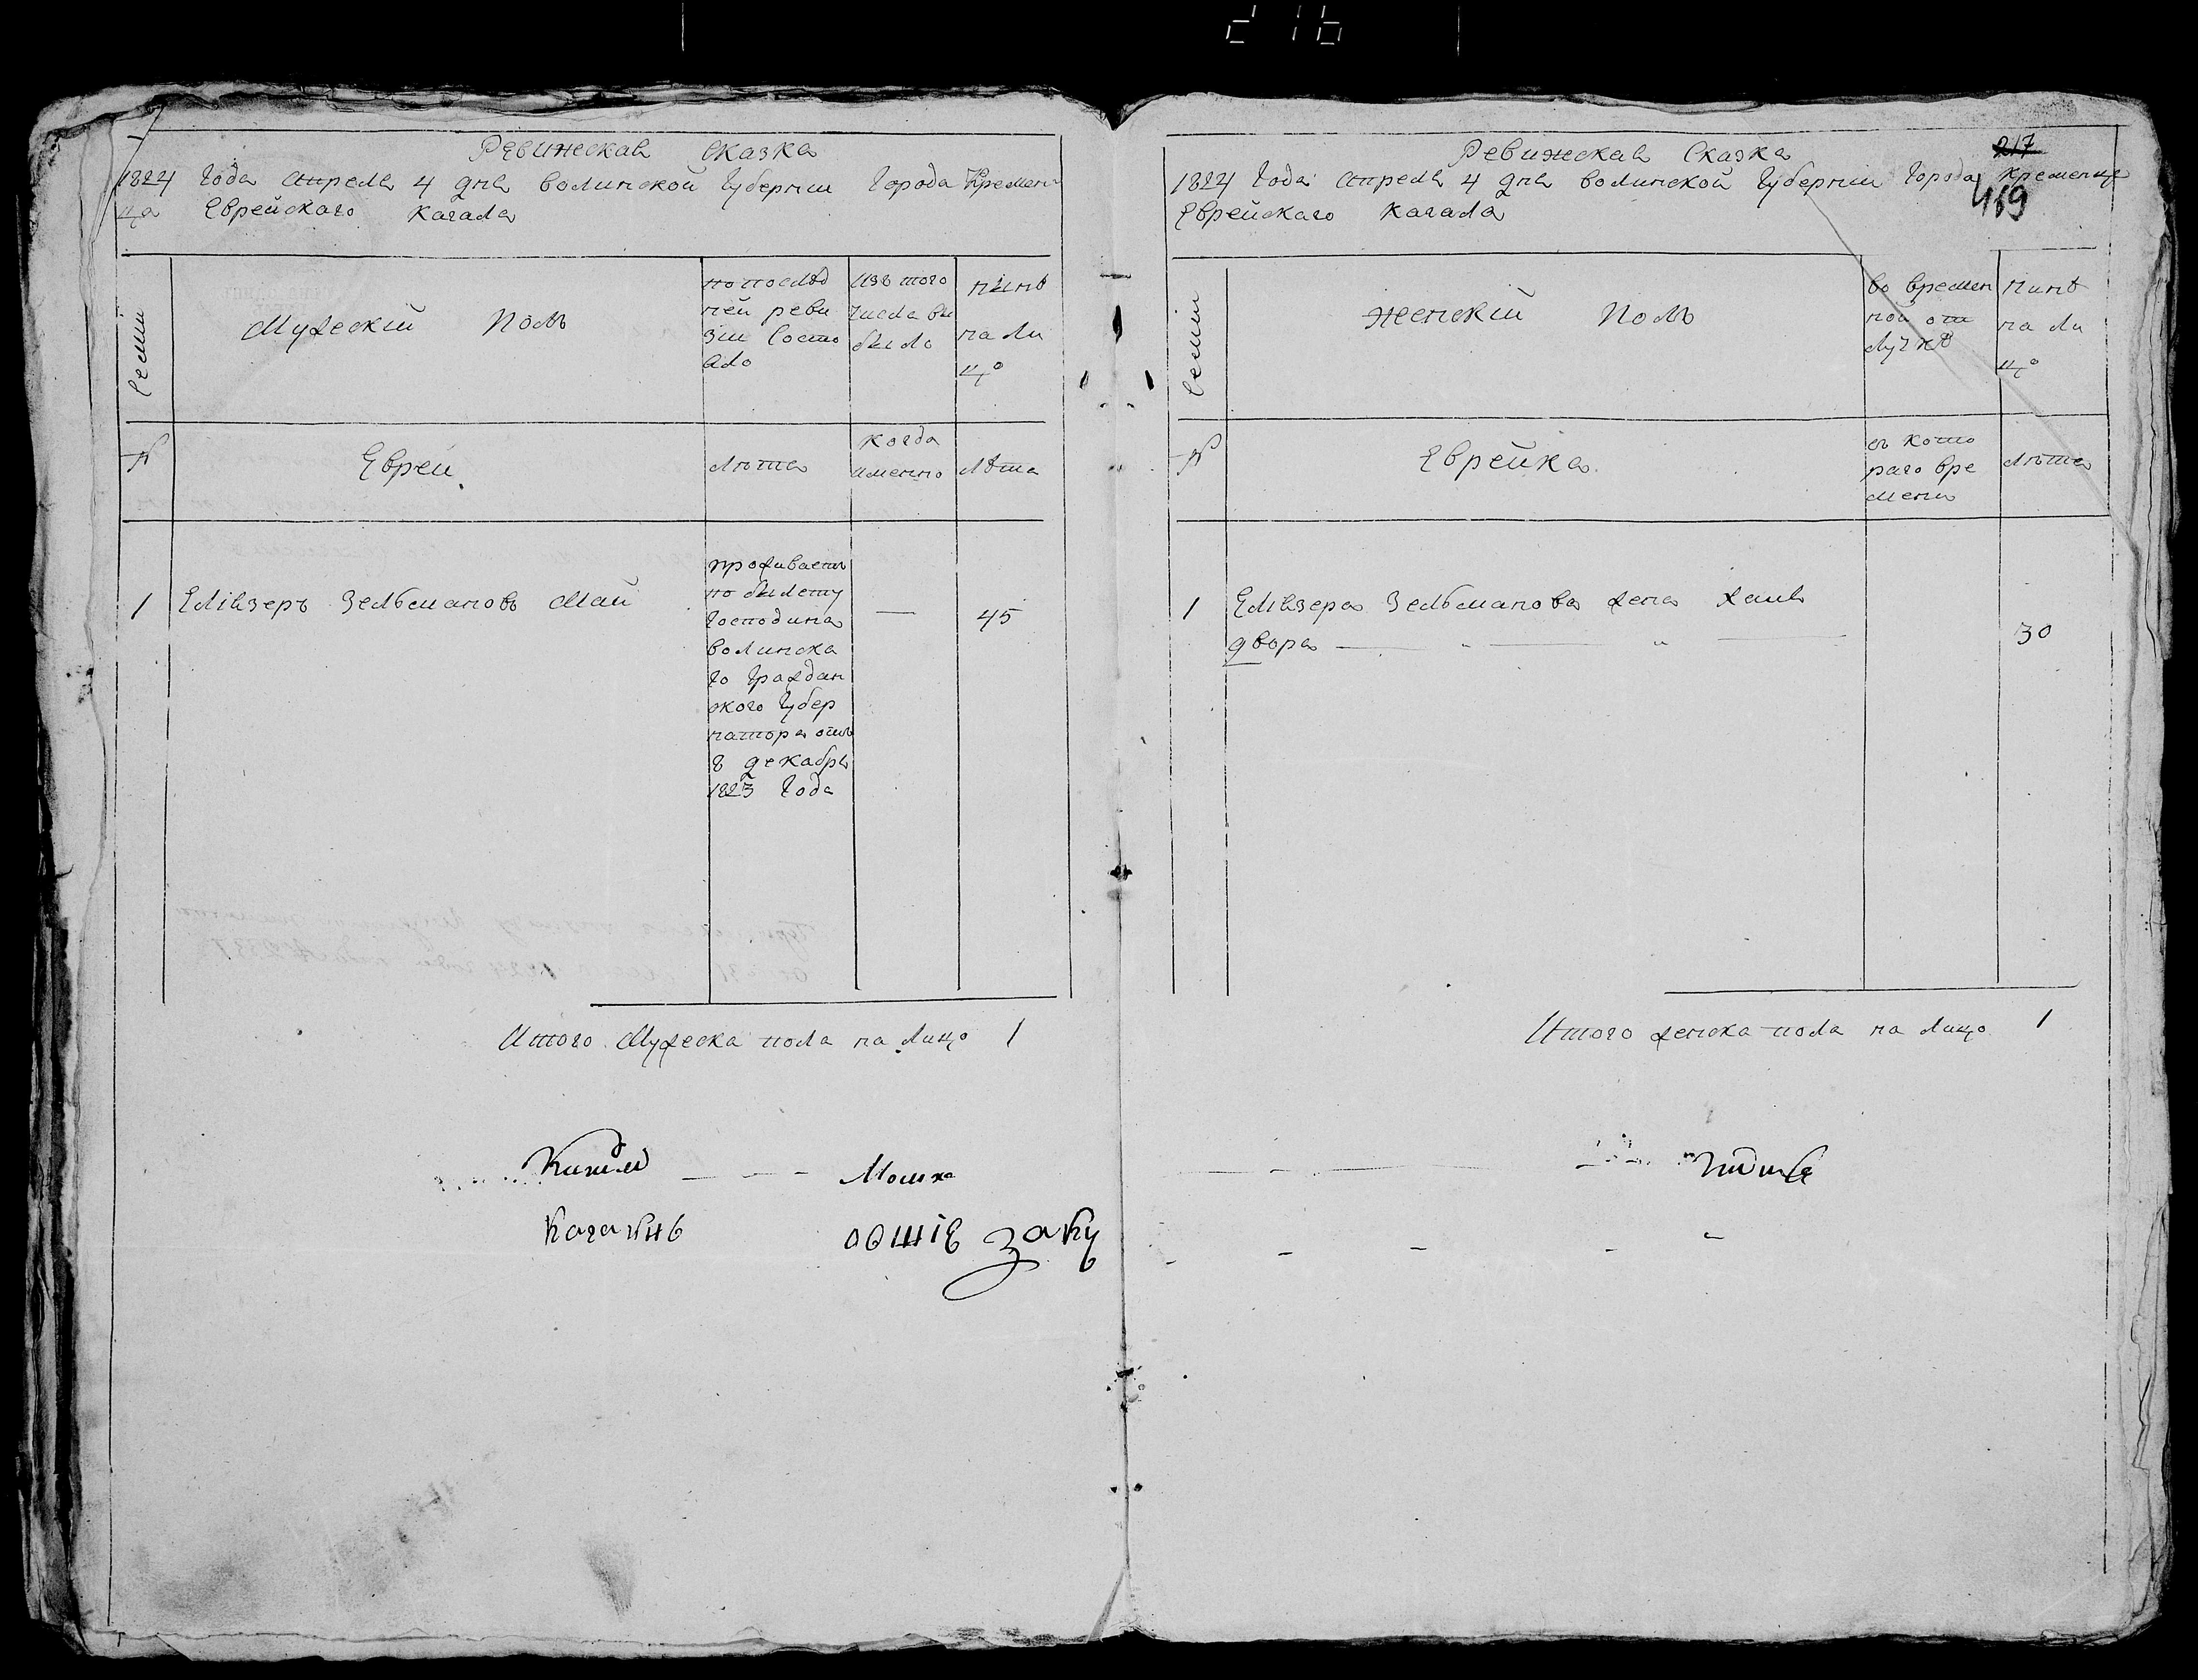 216
Ревижеская Сказка
1824 Года Апреля 4 дня волинской Губернии Города Кремен
ца Еврейского Кагала
Семіи
Мужескій Полъ
по послѣд
ней реви
зіи Состо
яло
Изъ того
числа вы
было
нинѣ
на ли
цо
№
Евреи
лѣта
когда
именно
лѣта
1
Еліязеръ Зельмановъ Май
проживаетъ
по билету
Господина
волинска
го Граждан
ского Губер
натора отъ
8 декабря
1823 Года
—
45
Итого Мужеска пола на лицо 1
Мошко
217
Ревижеская Сказка
1824 Года Апреля 4 дня волинской Губернии Города Кременца
469
Еврейского Кагала
Семіи
женскій Полъ
во времен
ной от
лучкѣ
нинѣ
на ли
цо
№
Еврейка
съ кото
раго вре
мени
лѣта
1
Еліязера Зельманова жена Хаия
двора
30
Итого женска пола на лицо 1